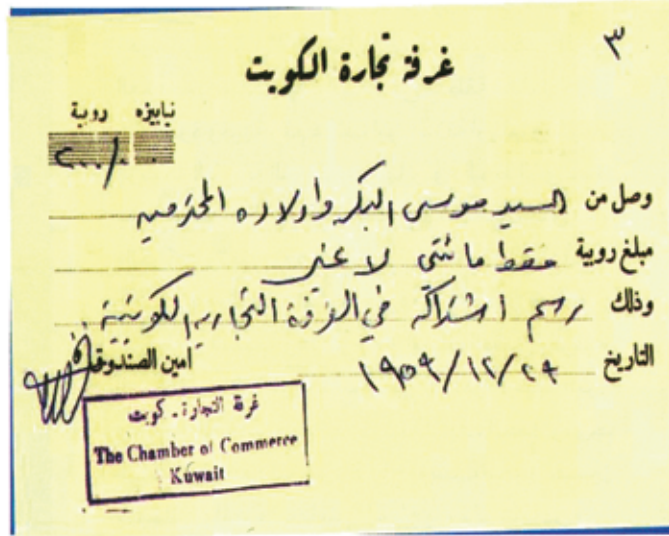 ٣
غرفة تجارة الكويت
نايبزه روبية
٢٠٠/٠٠
وصل من السيد موسى البكر واولاده المحترمين
مبلغ روبية فقط مائتي لا غير
وذلك رسم اشتراكه في الغرفة التجارية الكويتية.
التاريخ ٢٩/١٢/١٩٥٩ امين الصندوق
غرفة التجارة - كويت
The Chamber of Commerce
Kuwait